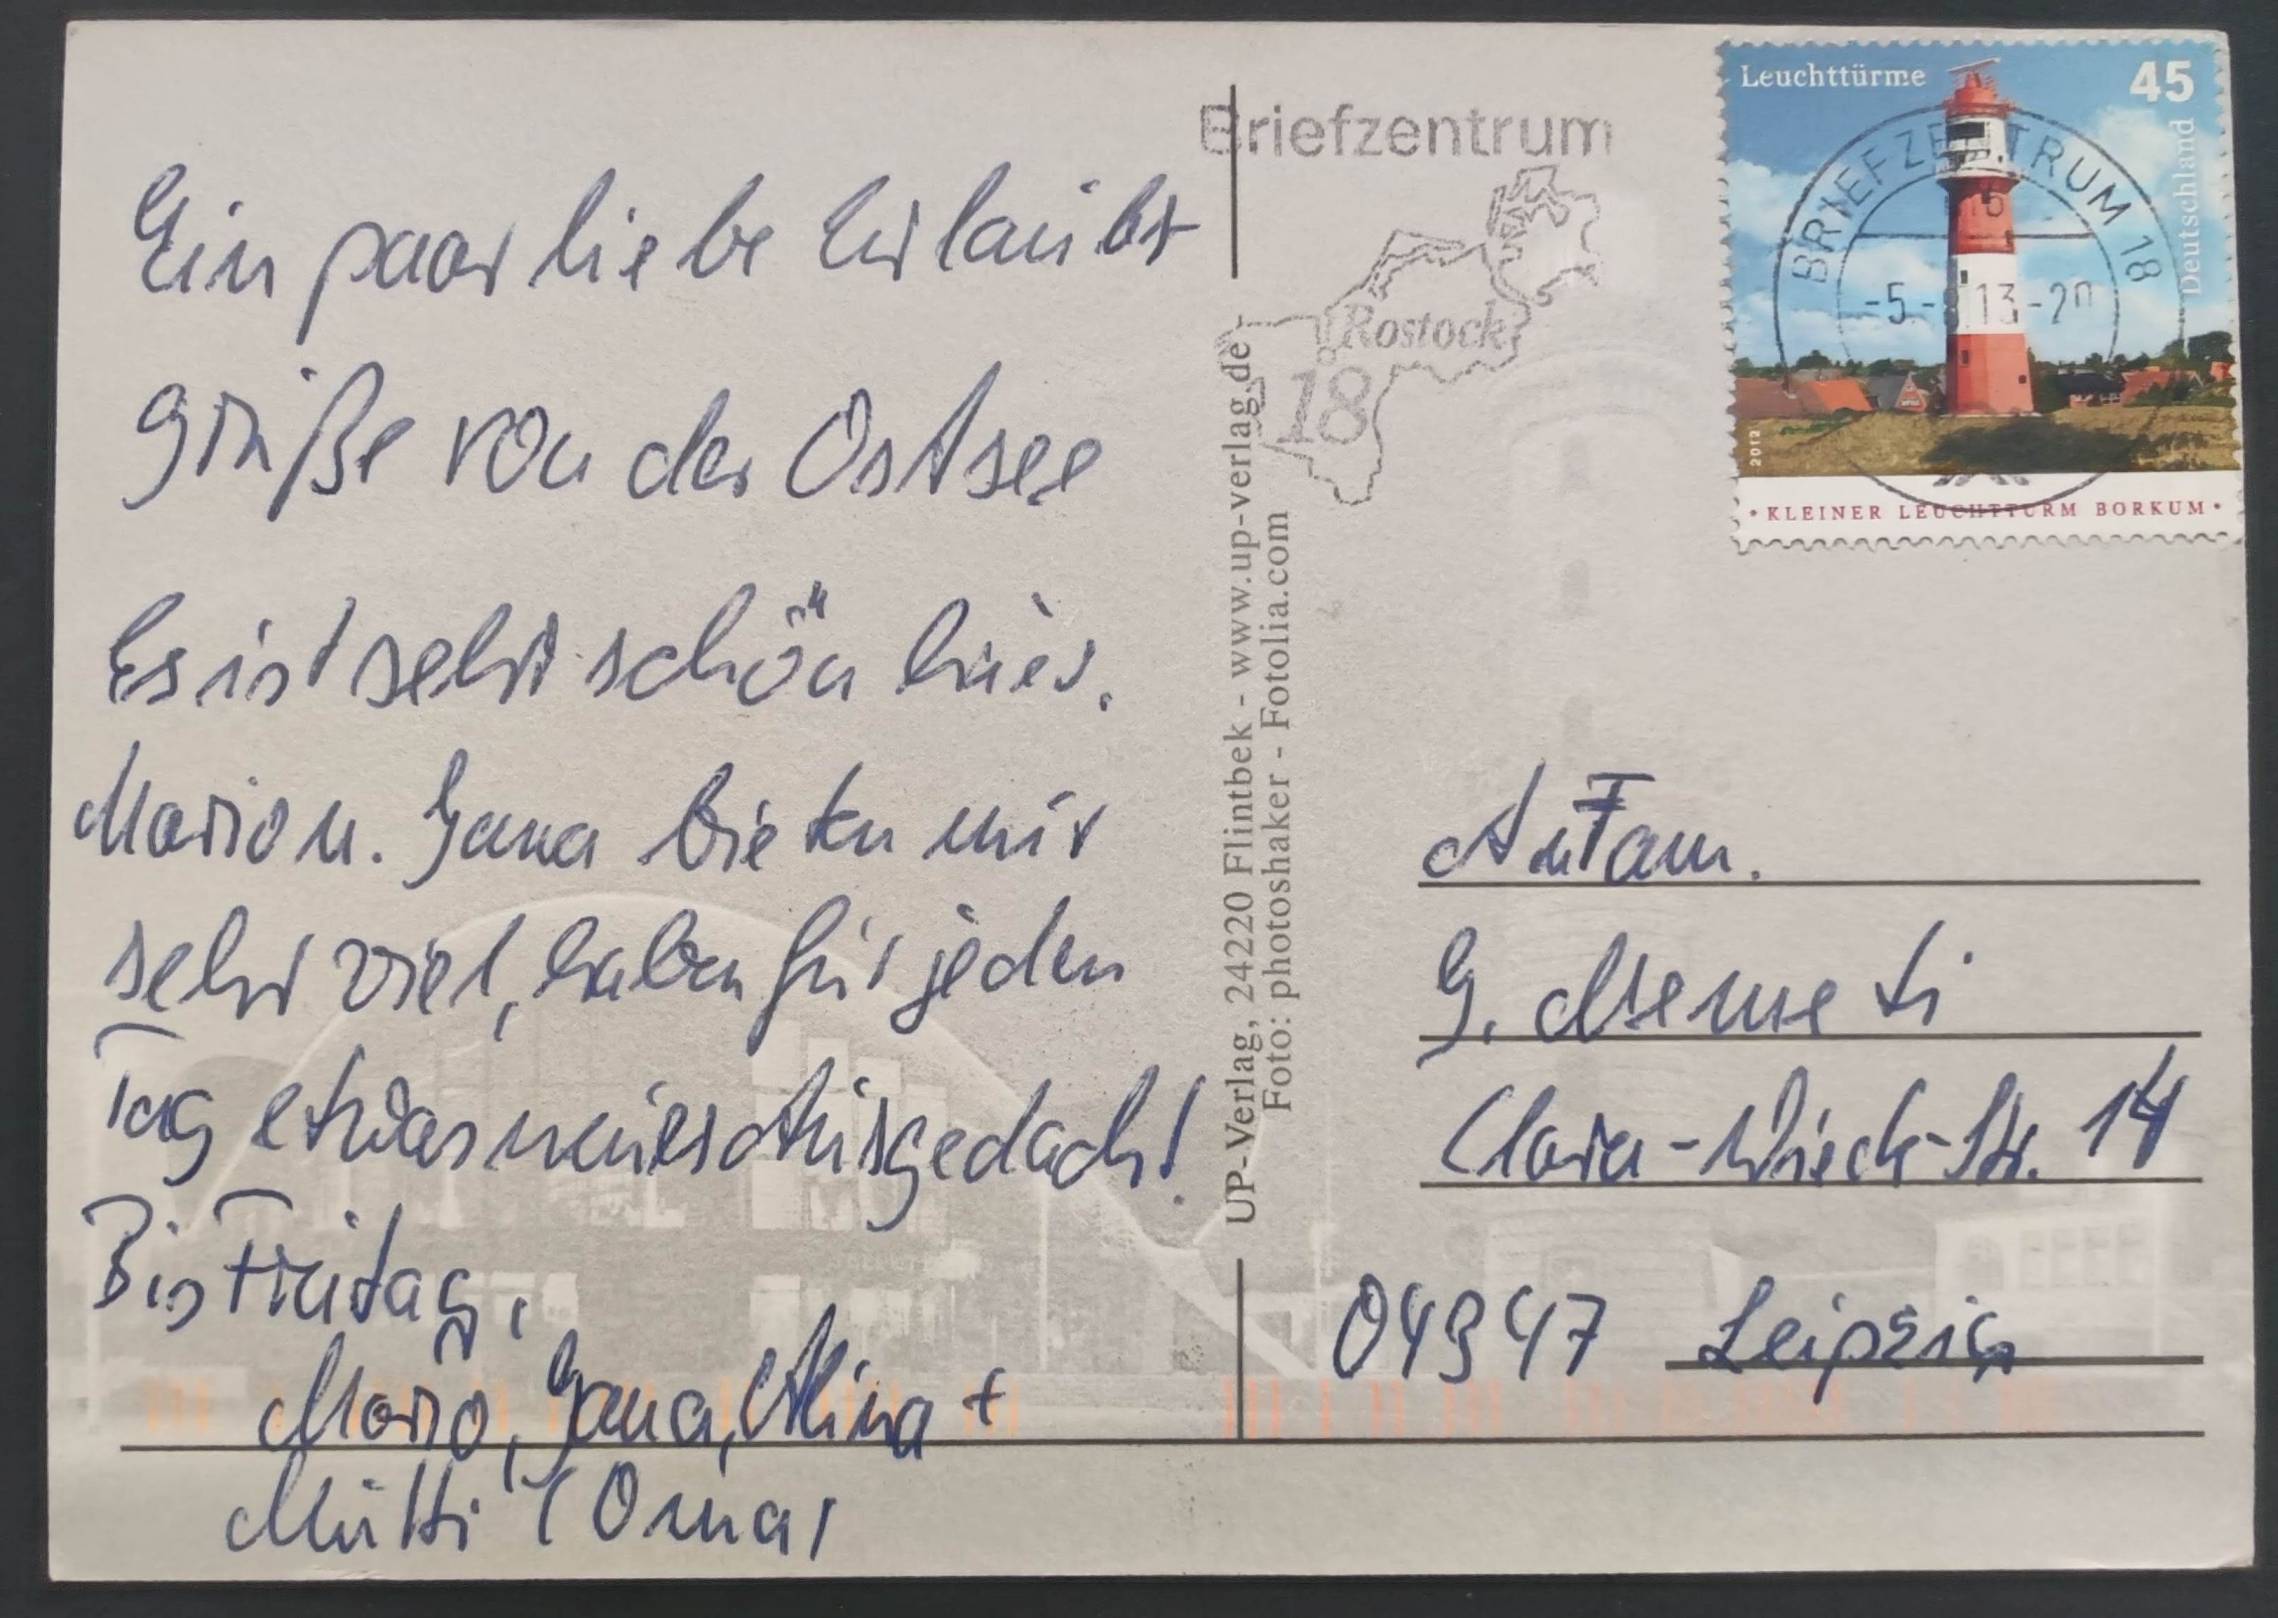 Ein paar liebe Urlaubs-
grüße von der Ostsee
Es ist sehr schön hier.
Mario u. Jana bieten mir
sehr viel, haben für jeden
Tag etwas neues ausgedacht!
Bis Freitag,
Mario, Jana, Alina +
Mutti (Oma)
UP-Verlag, 24220 Flintbek - www.up-verlag.de
Foto: photoshaker - Fotolia.com
Briefzentrum
Rostock
18
Leuchttürme 45
Deutschland
BRIEFZENTRUM 18
-5.-8.13-20
2012
• KLEINER LEUCHTTURM BORKUM •
An Fam.
G.
Clara-Wieck-Str. 14
04347 Leipzig